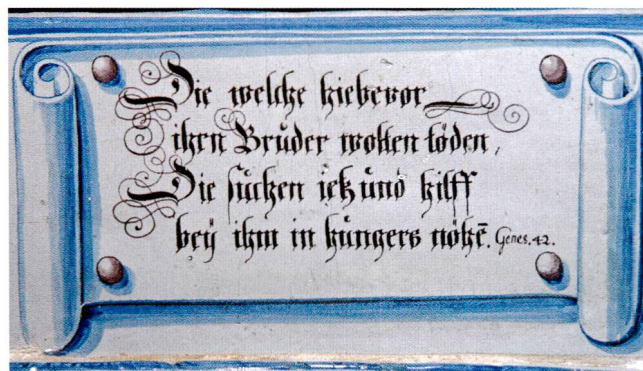 Die welche hiebevor
ihrn Brůder wolten töden,
Die suchen ietzůnd hilff
beÿ ihm in hůngers nöthē. Genes. 42.